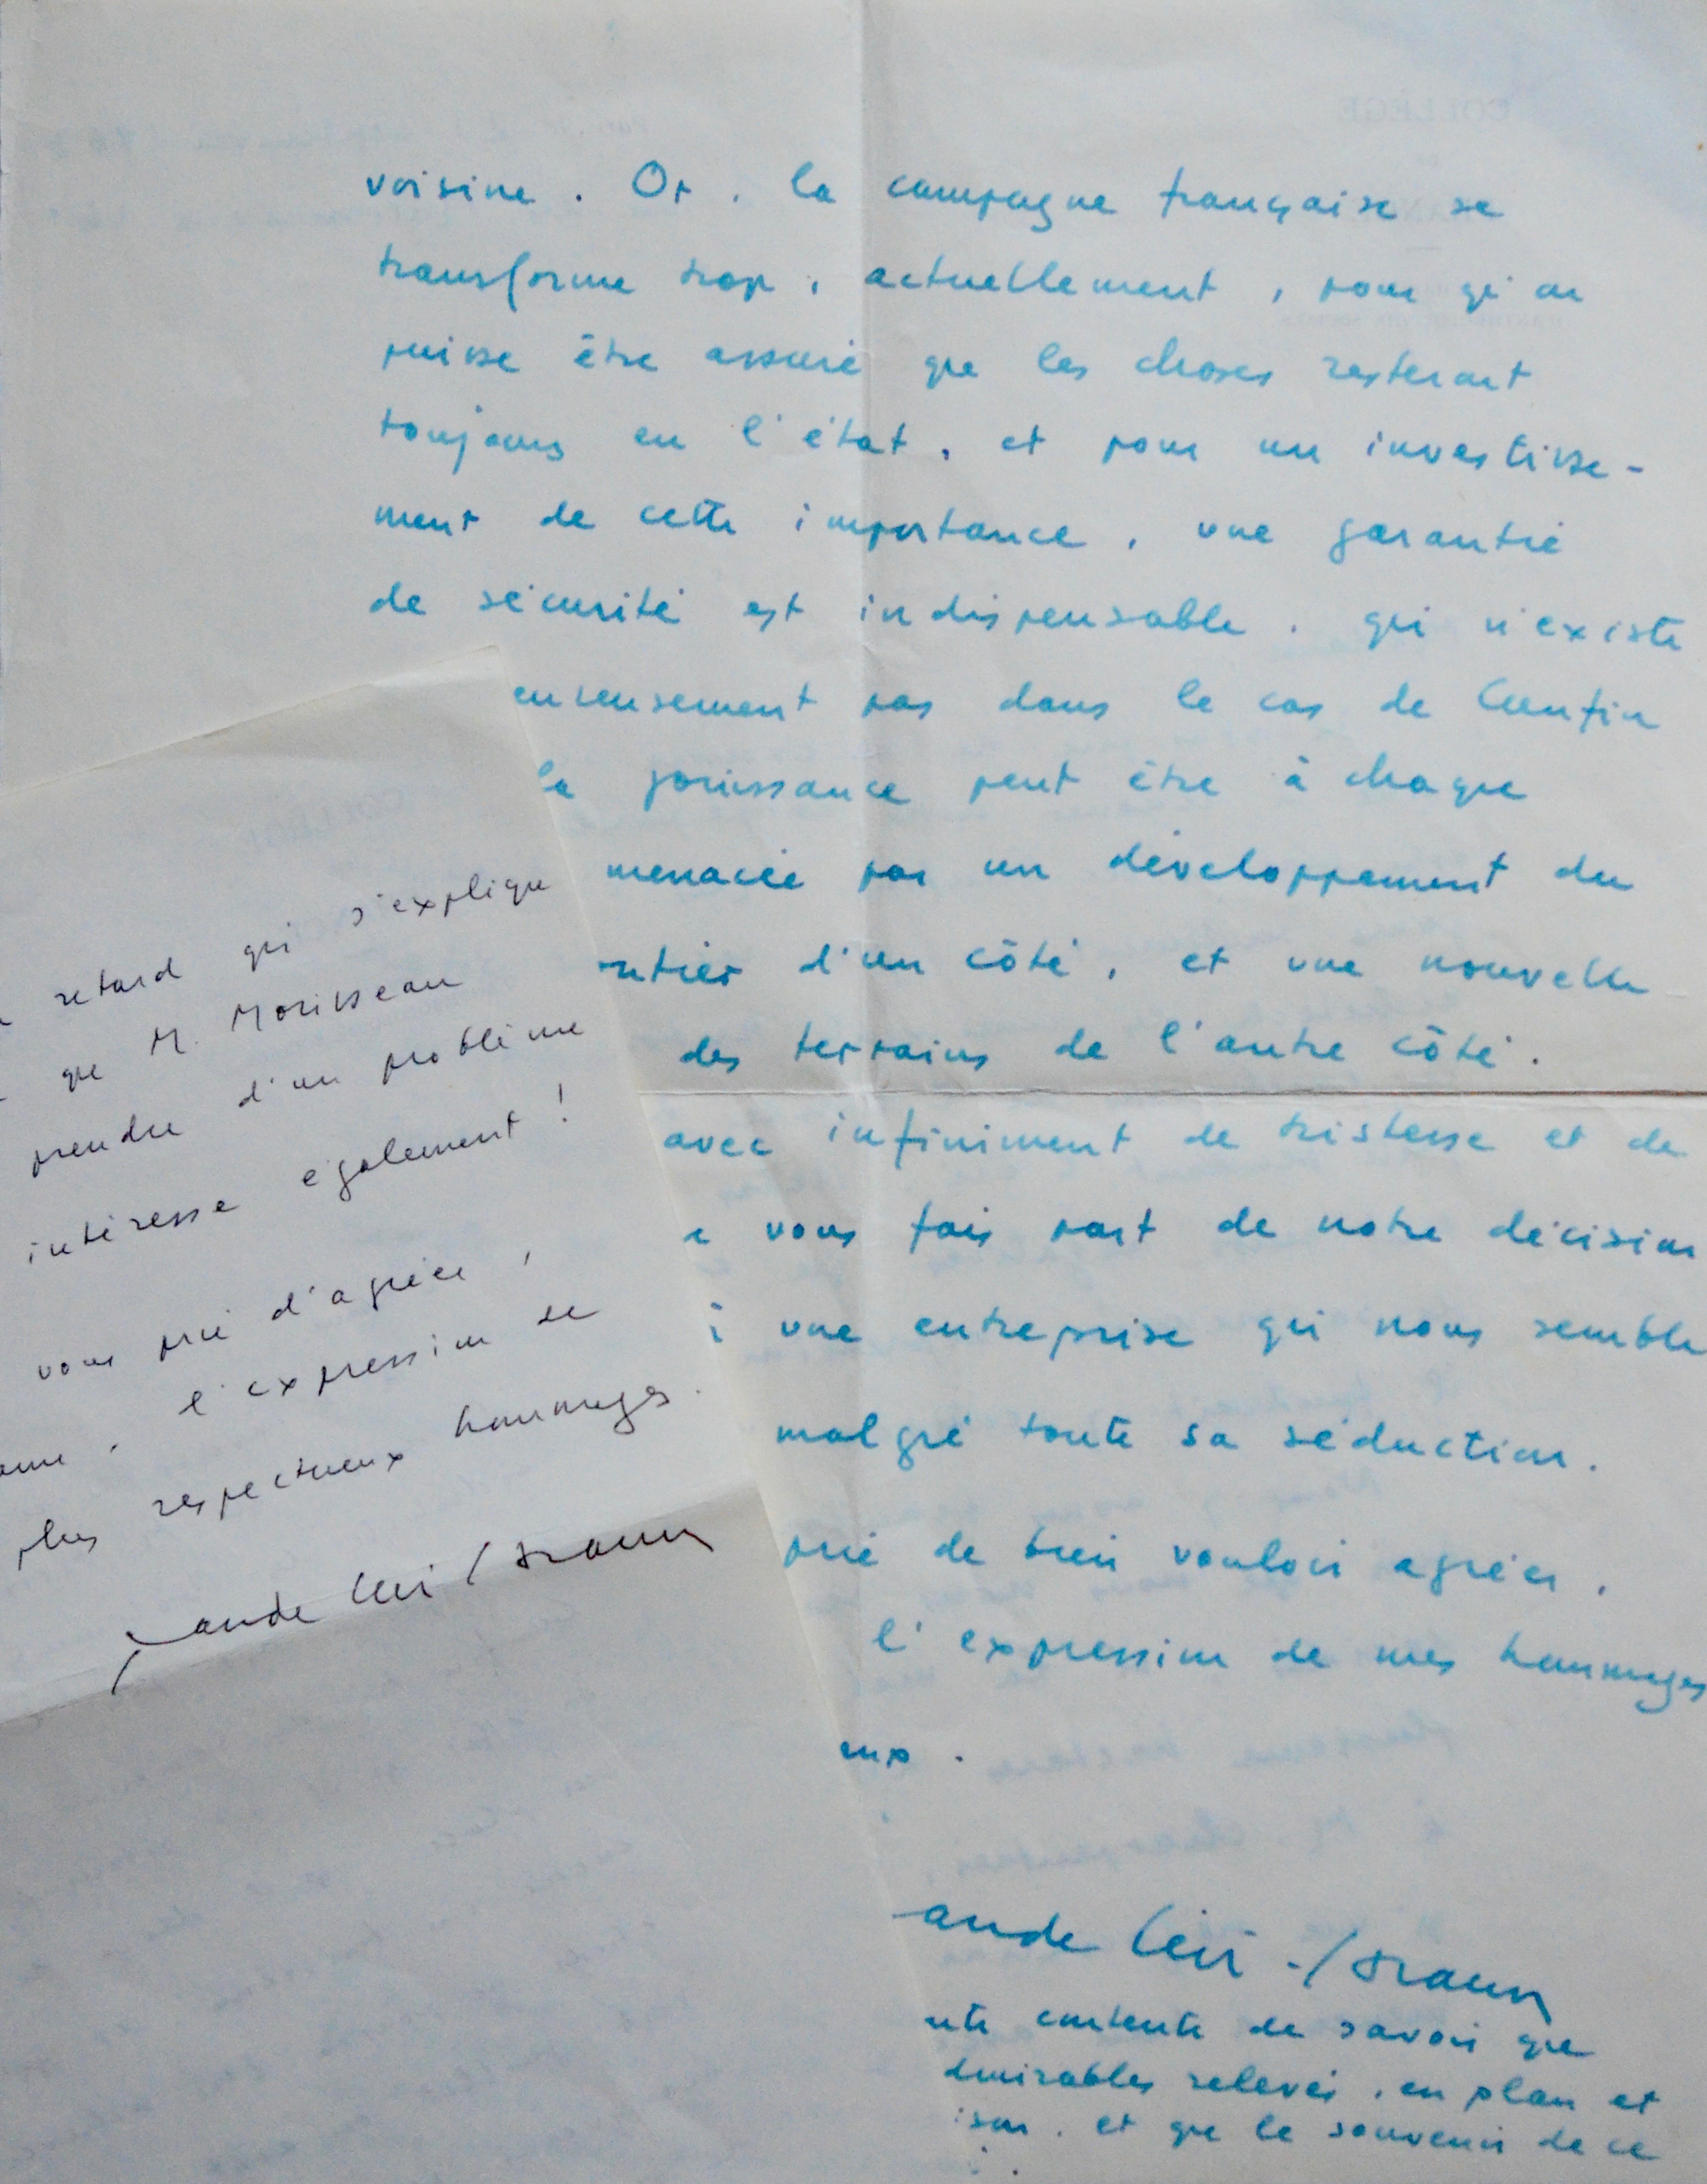 voisine. Or, la campagne française se
transforme trop, actuellement, pour qu'on
puisse être assuré que les choses resteront
toujours en l'état, et pour un investisse-
ment de cette importance, une garantie
de sécurité est indispensable, qui n'existe
eureusement pas dans le cas de
la jouissance peut être à chaque
menacée par un développement du
d'un côté, et une nouvelle
des terrains de l'autre côté.
avec infiniment de tristesse et de
vous fais part de notre décision
une entreprise qui nous semble
malgré toute sa séduction.
prie de bien vouloir agréer,
l'expression de mes hommages
eux.
aude Lévi-Strauss
contente de savoir que
dmirables relevés, en plan et
et que le souvenir de ce
retard qui s'explique
que M. Morisseau
prendre d'un problème
intéresse également!
vous prie d'agréer,
l'expression de
plus respectueux hommages.
Claude Lévi-Strauss
COLLÈGE